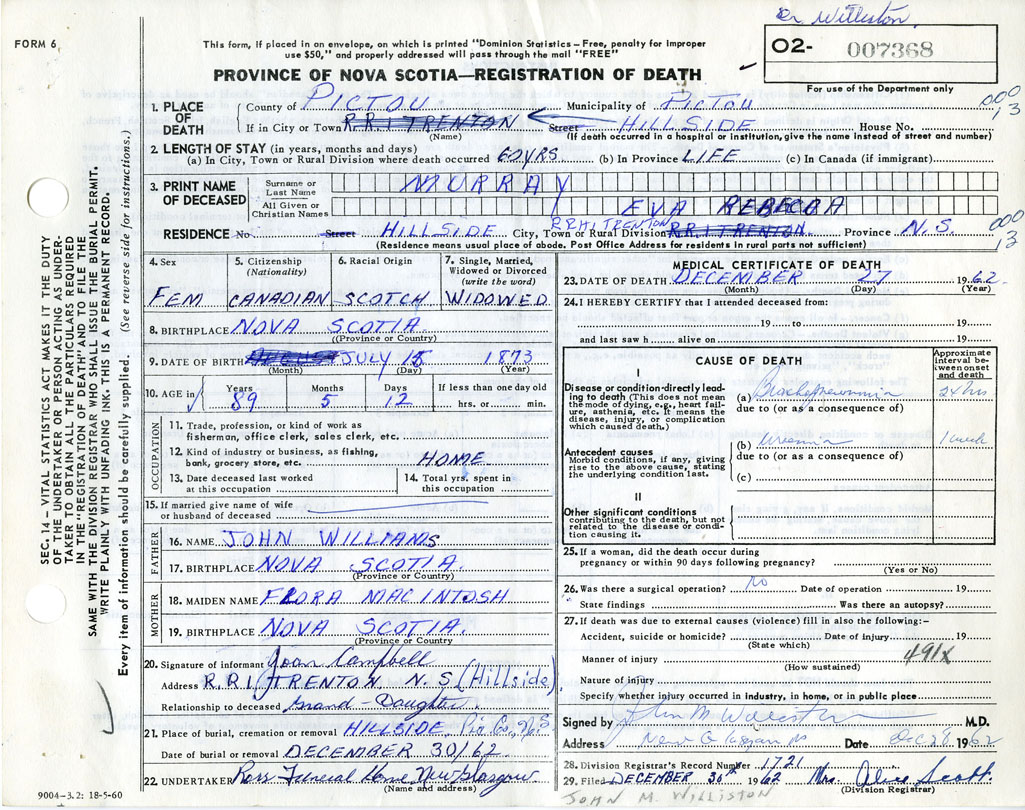 Dr. Williston
FORM 6
This form, if placed in an envelope, on which is printed "Dominion Statistics – Free, penalty for improper use $50," and properly addressed will pass through the mail "FREE"
O2- 007368
For use of the Department only
PROVINCE OF NOVA SCOTIA—REGISTRATION OF DEATH
1. PLACE OF DEATH County of PICTOU Municipality of PICTOU
000
13
If in City or Town R.R.1 TRENTON (Name) Street HILLSIDE House No.
(If death occurred in a hospital or institution, give the name instead of street and number)
2. LENGTH OF STAY (in years, months and days)
(a) In City, Town or Rural Division where death occurred 60 YRS (b) In Province LIFE (c) In Canada (if immigrant)
3. PRINT NAME OF DECEASED Surname or Last Name MURRAY
All Given or Christian Names EVA REBECCA
RESIDENCE No Street HILLSIDE City, Town or Rural Division R.R.1 TRENTON R.R.1 TRENTON Province N.S.
000
13
(Residence means usual place of abode. Post Office Address for residents in rural parts not sufficient)
4. Sex FEM
5. Citizenship (Nationality) CANADIAN
6. Racial Origin SCOTCH
7. Single, Married, Widowed or Divorced (write the word) WIDOWED
8. BIRTHPLACE NOVA SCOTIA
(Province or Country)
9. DATE OF BIRTH AUGUST JULY 15 1873
(Month) (Day) (Year)
10. AGE in Years 89 Months 5 Days 12 If less than one day old hrs. or min.
OCCUPATION
11. Trade, profession, or kind of work as fisherman, office clerk, sales clerk, etc.
12. Kind of industry or business, as fishing, bank, grocery store, etc. HOME
13. Date deceased last worked at this occupation
14. Total yrs. spent in this occupation
15. If married give name of wife or husband of deceased
FATHER
16. NAME JOHN WILLIAMS
17. BIRTHPLACE NOVA SCOTIA
(Province or Country)
MOTHER
18. MAIDEN NAME FLORA MACINTOSH
19. BIRTHPLACE NOVA SCOTIA.
(Province or Country)
20. Signature of informant Joan Campbell
Address R.R.1, TRENTON N.S (Hillside)
Relationship to deceased Grand-Daughter
21. Place of burial, cremation or removal HILLSIDE Pic Co, N.S
Date of burial or removal DECEMBER 30/62
22. UNDERTAKER Ross Funeral Home New Glasgow
(Name and address)
9004-3.2: 18-5-60
MEDICAL CERTIFICATE OF DEATH
23. DATE OF DEATH DECEMBER 27 1962
(Month) (Day) (Year)
24. I HEREBY CERTIFY that I attended deceased from:
19 to 19
and last saw h alive on 19
CAUSE OF DEATH
Approximate interval between onset and death
I
Disease or condition directly leading to death (This does not mean the mode of dying, e.g., heart failure, asthenia, etc. It means the disease, injury, or complication which caused death.)
(a) Bronchopneumonia 24 hrs
due to (or as a consequence of)
Antecedent causes
Morbid conditions, if any, giving rise to the above cause, stating the underlying condition last.
(b) Uremia 1 week
due to (or as a consequence of)
(c)
II
Other significant conditions
contributing to the death, but not related to the disease or condition causing it.
25. If a woman, did the death occur during pregnancy or within 90 days following pregnancy?
(Yes or No)
26. Was there a surgical operation? no Date of operation 19
State findings Was there an autopsy?
27. If death was due to external causes (violence) fill in also the following:-
Accident, suicide or homicide? Date of injury 19
(State which)
Manner of injury 491X
(How sustained)
Nature of injury
Specify whether injury occurred in industry, in home, or in public place
Signed by John M Williston M.D.
Address New Glasgow NS Date Dec 28 1962
28. Division Registrar's Record Number 1721
29. Filed DECEMBER 30th 1962 Mrs. Alice Scott
(Division Registrar)
JOHN M. WILLISTON
SEC. 14 – VITAL STATISTICS ACT MAKES IT THE DUTY
OF THE UNDERTAKER OR PERSON ACTING AS UNDER-
TAKER TO OBTAIN ALL THE PARTICULARS REQUIRED
IN THE "REGISTRATION OF DEATH" AND TO FILE THE
SAME WITH THE DIVISION REGISTRAR WHO SHALL ISSUE THE BURIAL PERMIT.
WRITE PLAINLY WITH UNFADING INK. THIS IS A PERMANENT RECORD.
Every item of information should be carefully supplied. (See reverse side for instructions.)